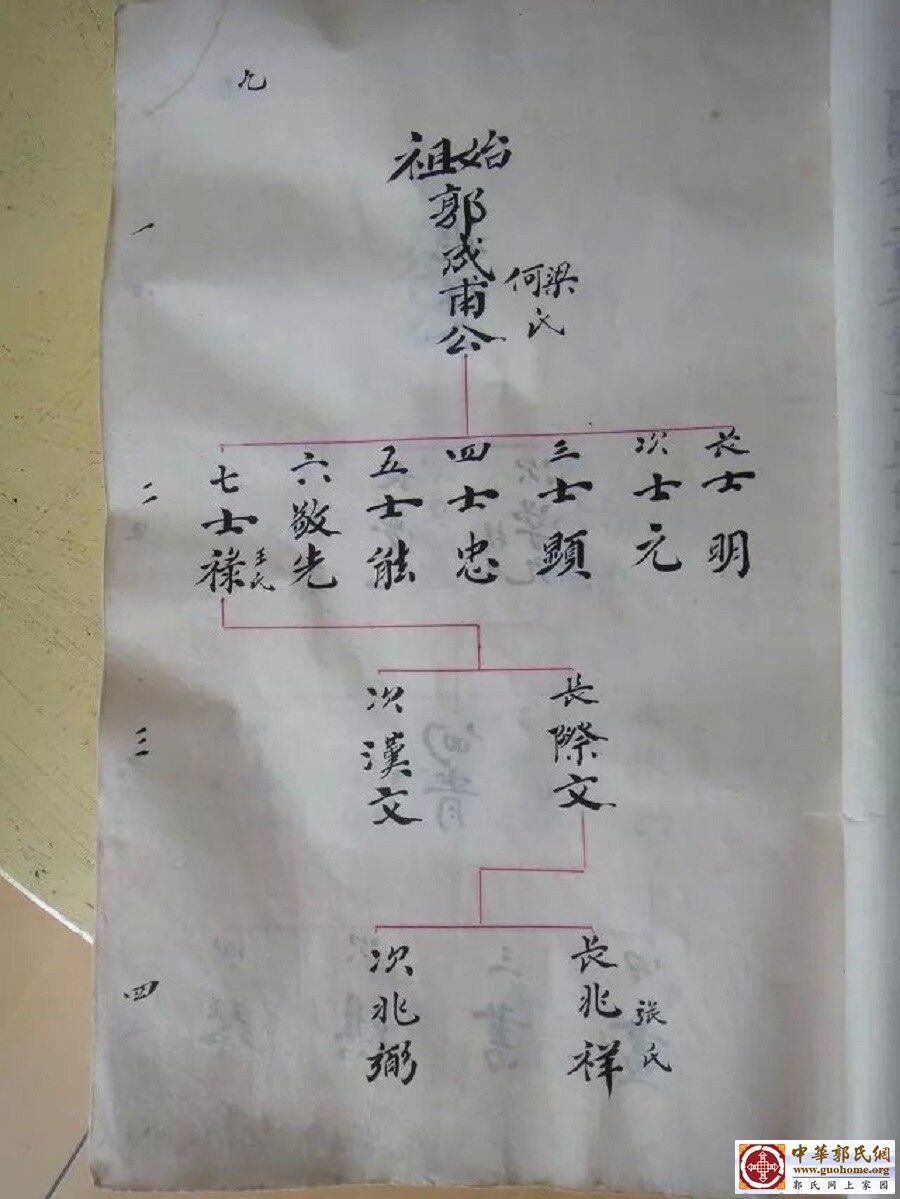 九
始祖
郭成甫公
梁何氏
一
長士明
次士元
三士顯
四士忠
五士能
六敬先
七士祿
王氏
二
長際文
次漢文
三
長兆祥
張氏
次兆弼
四
中華郭氏網
www.guohome.org
郭氏网上家园